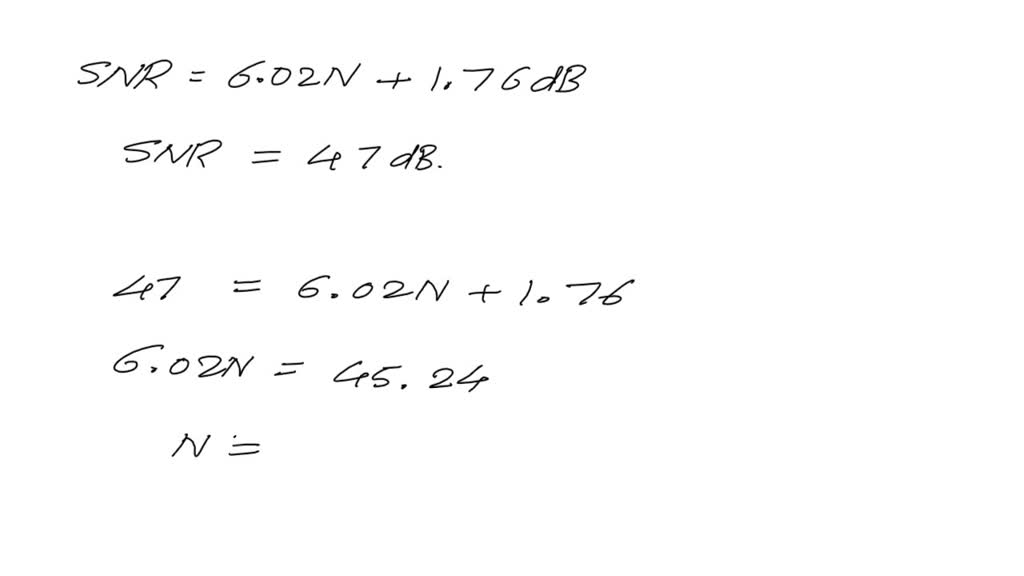 SNR = 6.02N + 1.76 dB
SNR = 47 dB.
47 = 6.02N + 1.76
6.02N = 45.24
N =